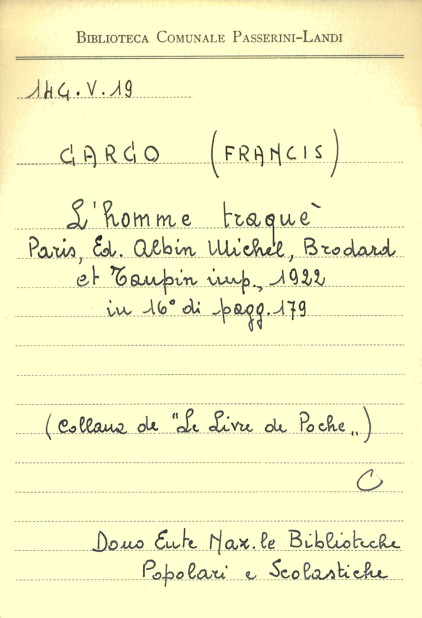 BIBLIOTECA COMUNALE PASSERINI-LANDI
1HG.V.19
CARCO (FRANCIS)
L'homme traquè
Paris, Ed. Albin Michel, Brodard
et Taupin imp., 1922
in 16° di pagg. 179
(Collana de "Le Livre de Poche„)
C
Dono Ente Naz.le Biblioteche
Popolari e Scolastiche